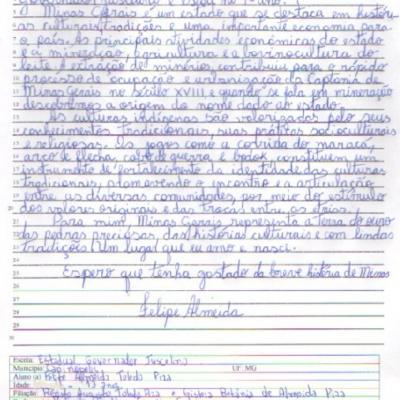 Governador Juscelino e estou no 7º ano.
Minas Gerais é um estado que se destaca em histór
ias culturas, tradições e uma importante economia para
o país. As principais atividades econômicas do estado
é a mineração, agricultura e a bovinocultura do
leite. A extração de minérios contribuiu para o rápido
processo de ocupação e urbanização da Capitania de
Minas Gerais no século XVIII, e quando se fala em mineração
descobrimos a origem do nome dado ao estado.
As culturas indígenas são valorizadas pelo seus
conhecimentos tradicionais, suas práticas socioculturais
e religiosas. Os jogos como a corrida do maracá,
arco e flecha, cabo de guerra e constituem um
instrumento de fortalecimento da identidade das culturas
tradicionais, promovendo o encontro e a articulação
entre as diversas comunidades, por meio do estímulo
dos valores originais e das trocas entre as etnias.
Para mim, Minas Gerais representa a terra do ouro
das pedras preciosas, das histórias culturais e com lindas
tradições. Um lugar que eu amo e nasci.
Espero que tenha gostado da breve história de Minas
Felipe Almeida
Escola: Estadual Governador Juscelino
Município: UF: MG
Aluno (a): Felipe Almeida Toledo Piza
Idade: 13 anos
Filiação: Augusto Toledo Piza e de Almeida Piza